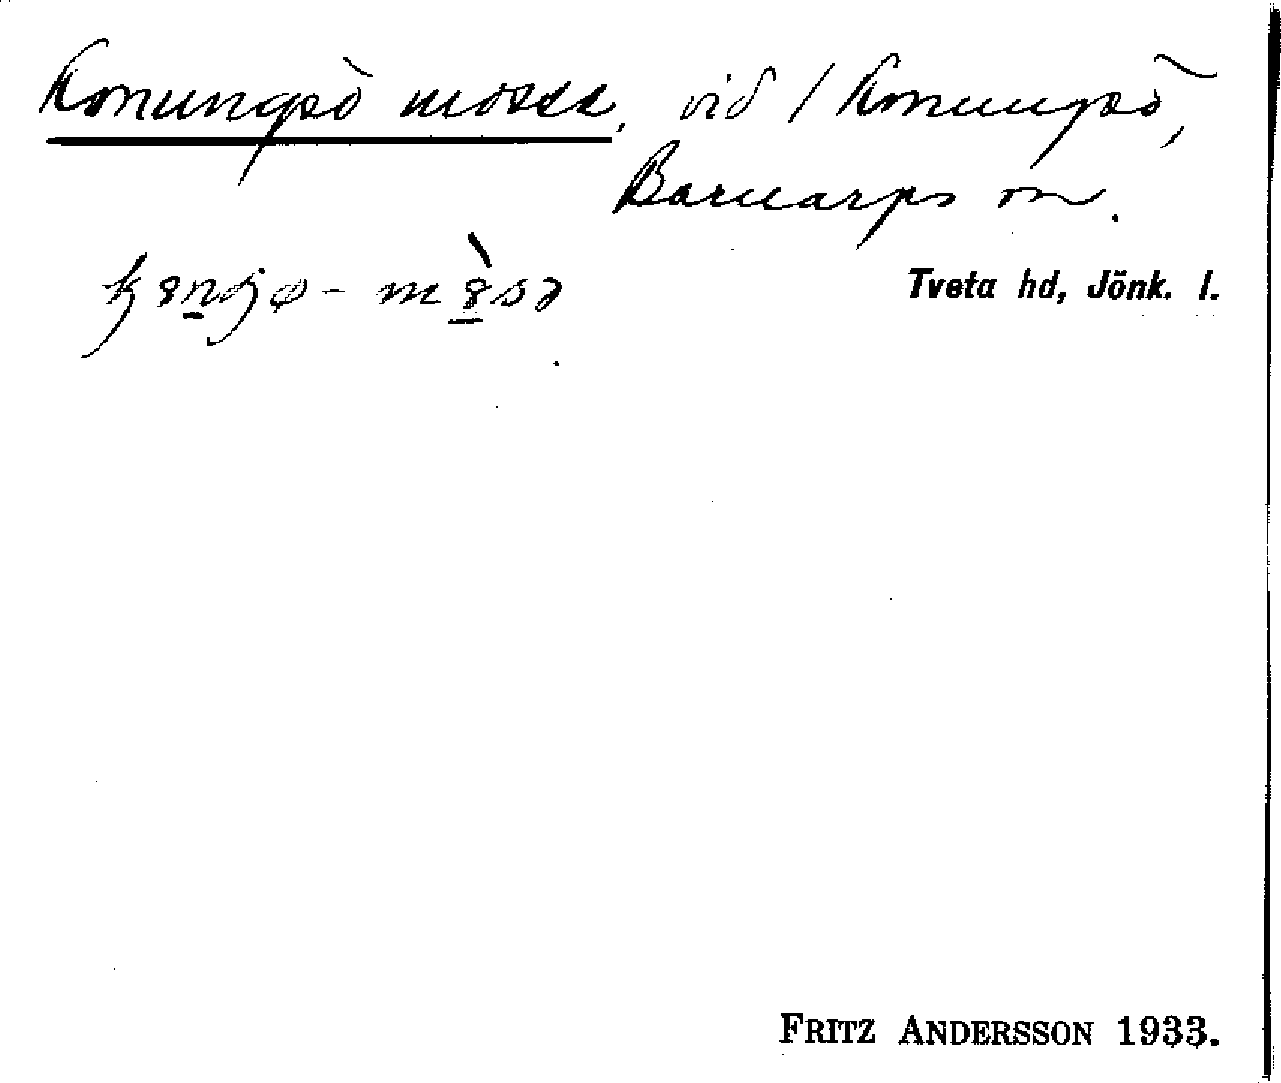 Konungsö mosse, vid / Konungsö,
Barnarps sn.
Tveta hd, Jönk. l.
FRITZ ANDERSSON 1933.